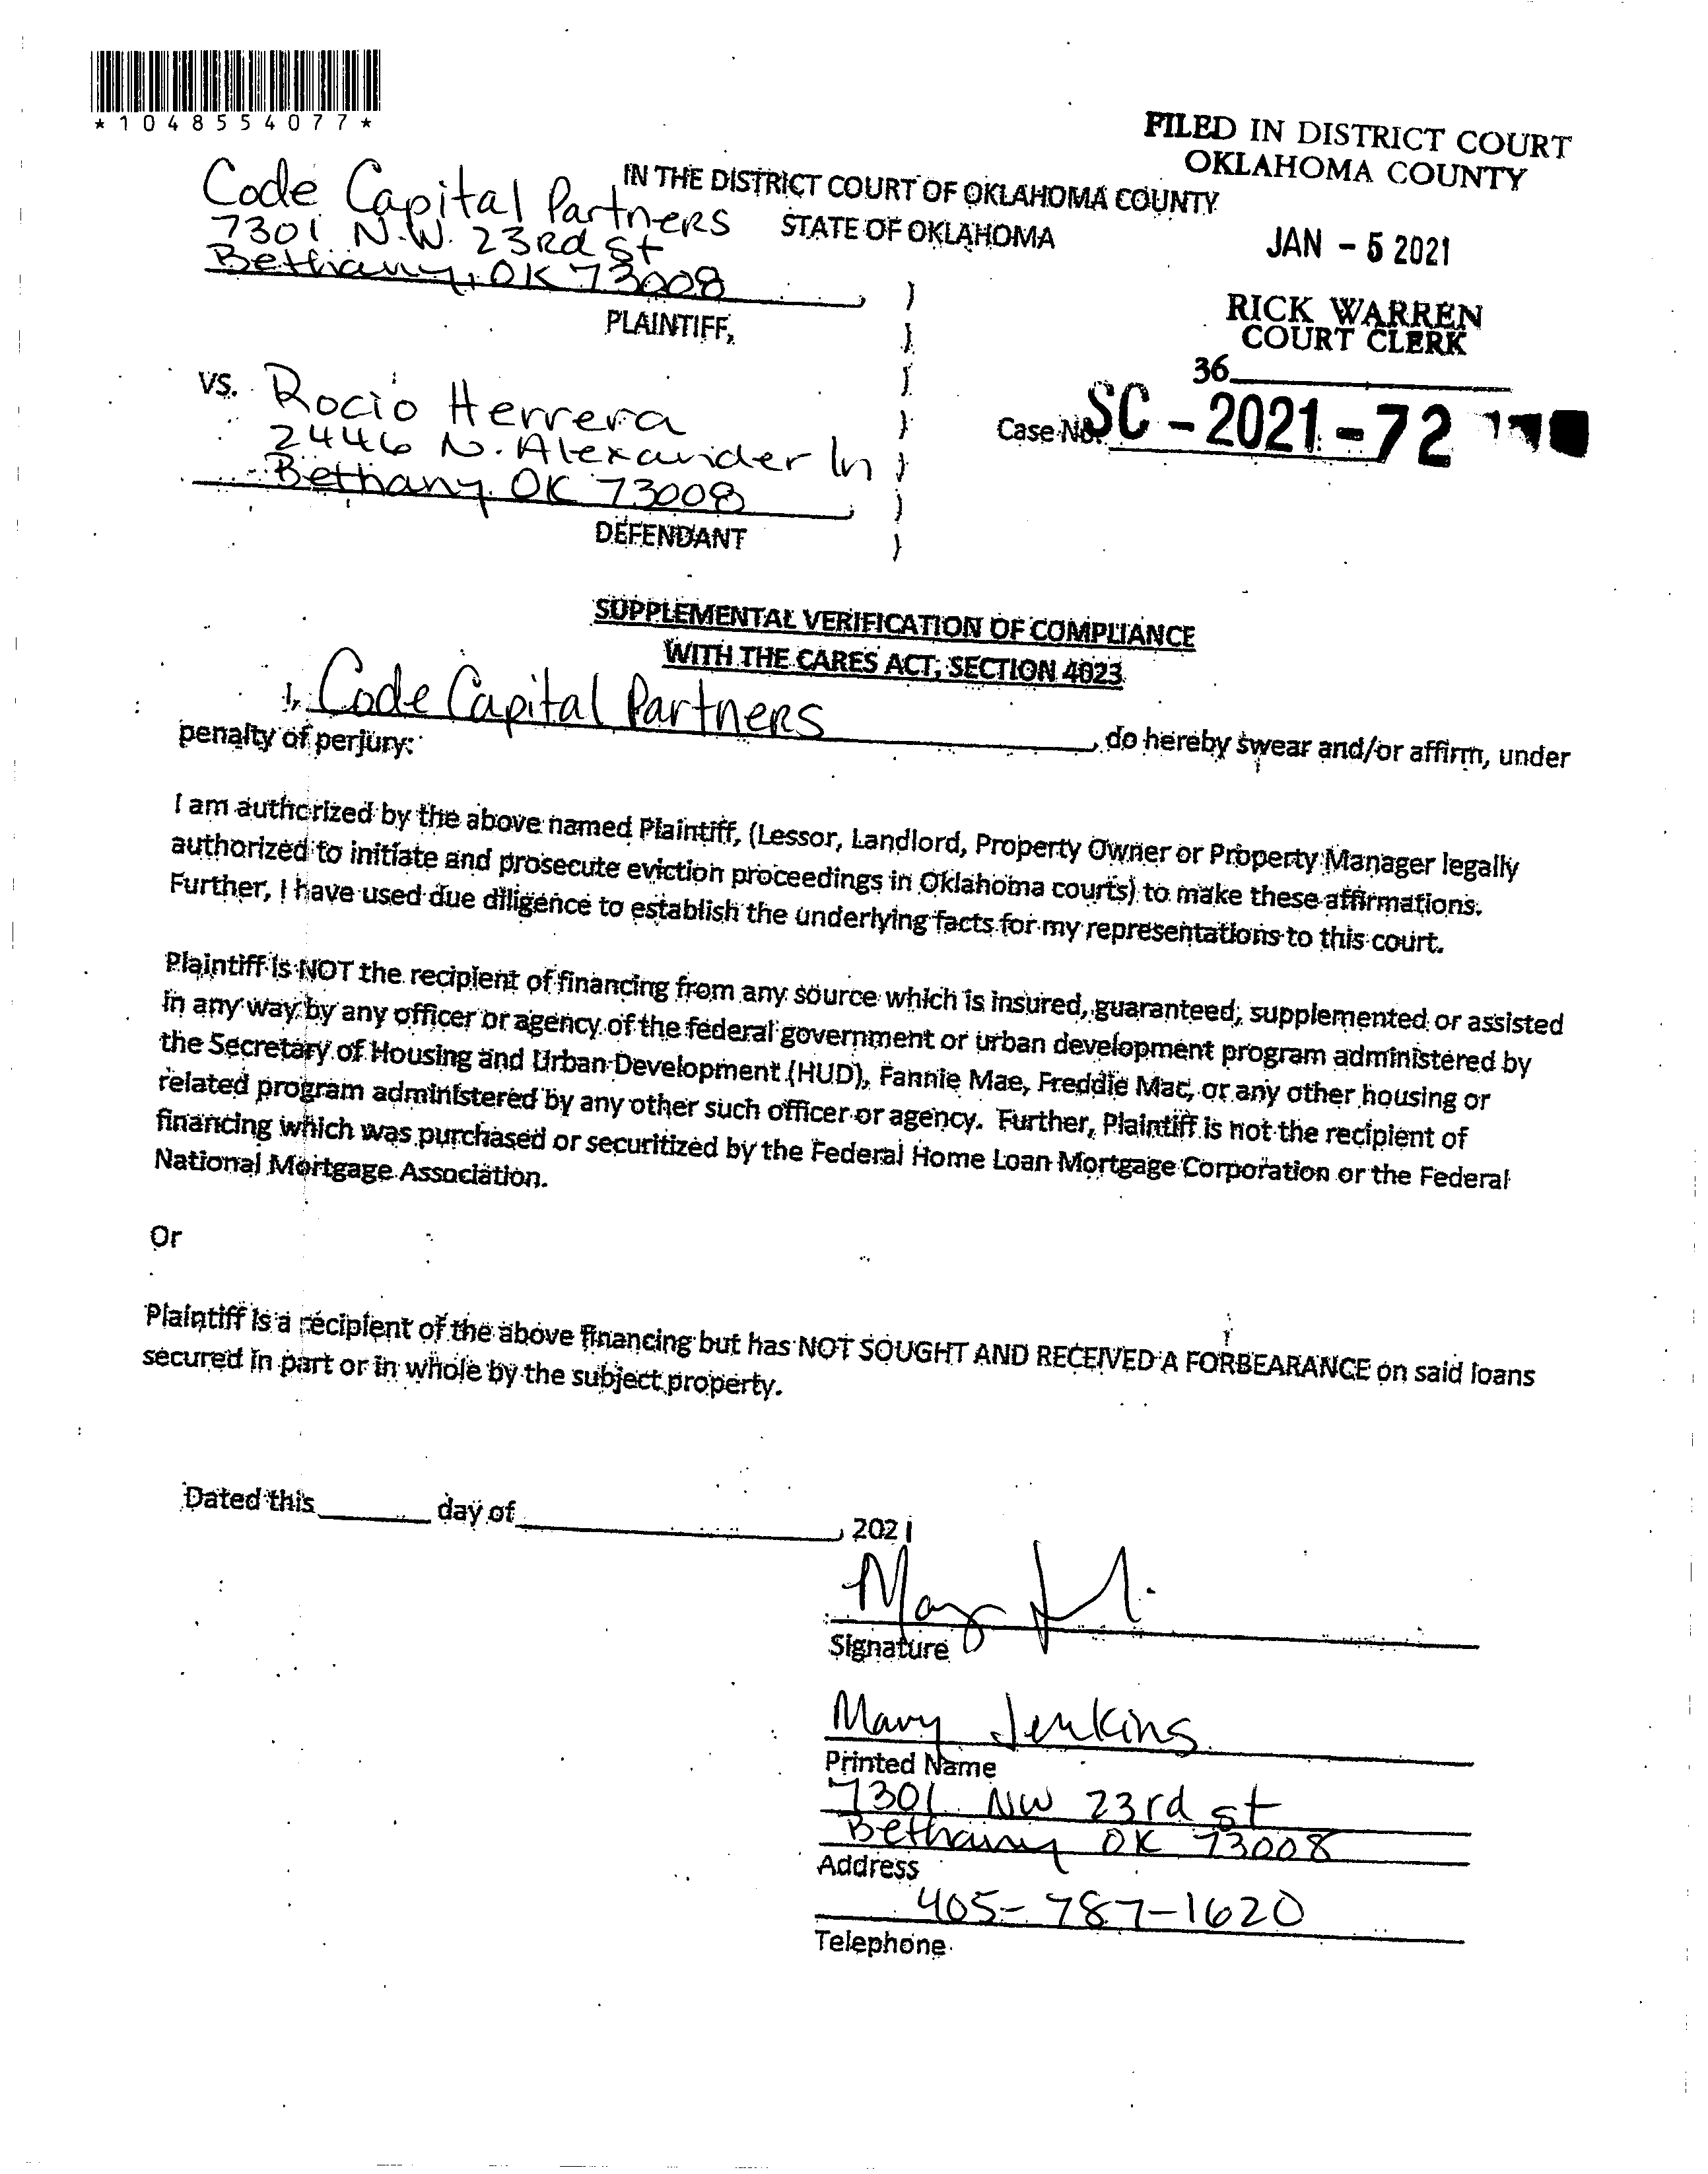 *1048554077*
FILED IN DISTRICT COURT
OKLAHOMA COUNTY
JAN - 5 2021
RICK WARREN
COURT CLERK
36
IN THE DISTRICT COURT OF OKLAHOMA COUNTY
STATE OF OKLAHOMA
Code Capital Partners
7301 N.W. 23Rd St
Bethany, OK 73008
PLAINTIFF,
vs. Rocio Herrera
2446 N. Alexander ln
Bethany OK 73008
DEFENDANT
Case No. SC - 2021 - 72
SUPPLEMENTAL VERIFICATION OF COMPLIANCE
WITH THE CARES ACT, SECTION 4023
I, Code Capital Partners, do hereby swear and/or affirm, under
penalty of perjury:
I am authorized by the above named Plaintiff, (Lessor, Landlord, Property Owner or Property Manager legally
authorized to initiate and prosecute eviction proceedings in Oklahoma courts) to make these affirmations.
Further, I have used due diligence to establish the underlying facts for my representations to this court.
Plaintiff is NOT the recipient of financing from any source which is insured, guaranteed, supplemented or assisted
in any way by any officer or agency of the federal government or urban development program administered by
the Secretary of Housing and Urban Development (HUD), Fannie Mae, Freddie Mac, or any other housing or
related program administered by any other such officer or agency. Further, Plaintiff is not the recipient of
financing which was purchased or securitized by the Federal Home Loan Mortgage Corporation or the Federal
National Mortgage Association.
Or
Plaintiff is a recipient of the above financing but has NOT SOUGHT AND RECEIVED A FORBEARANCE on said loans
secured in part or in whole by the subject property.
Dated this ______ day of ____________________, 2021
Signature
Mary Jenkins
Printed Name
7301 NW 23rd st
Bethany OK 73008
Address
405-787-1620
Telephone